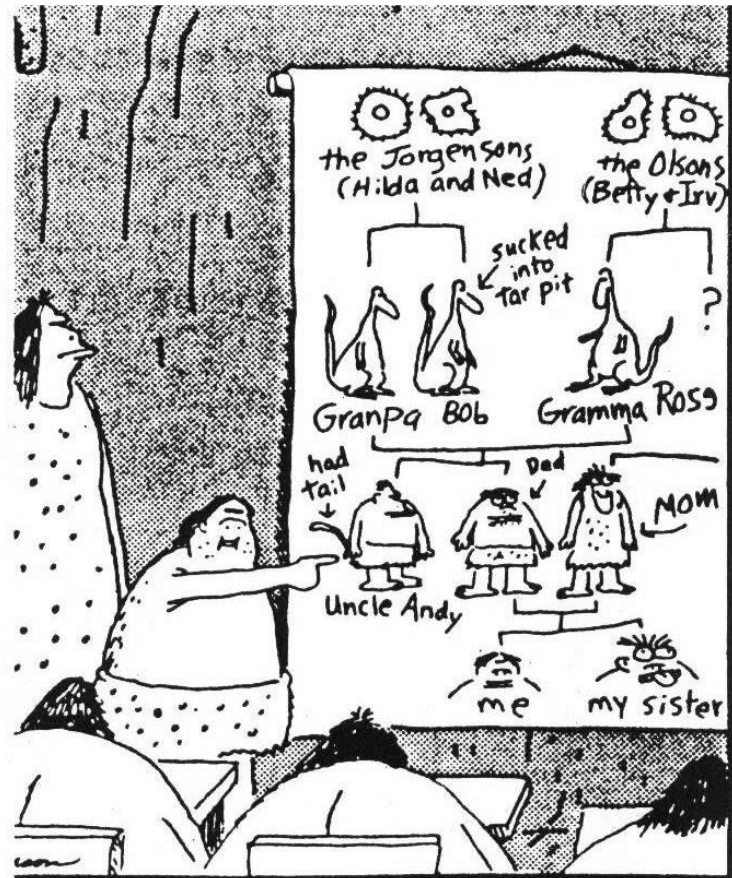 the Jorgensons
(Hilda and Ned)
the Olsons
(Betty + Irv)
sucked
into
tar pit
?
Granpa
Bob
Gramma
Rose
had
tail
Dad
Mom
Uncle Andy
me
my sister